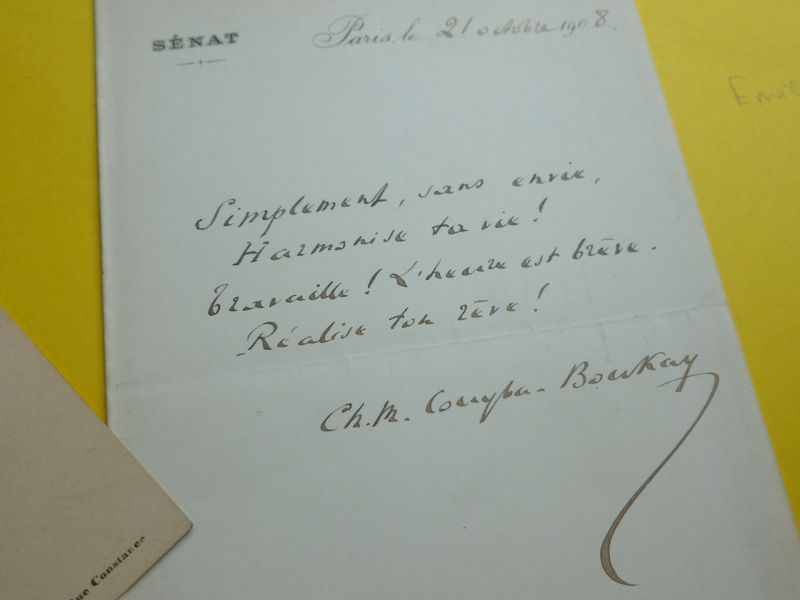 SÉNAT
Paris, le 21 octobre 1908.
Simplement, sans envie,
Harmonise ta vie !
Travaille ! L'heure est brève.
Réalise ton rêve !
Ch. M. Couyba-Boukay
Emil
Rue Constance